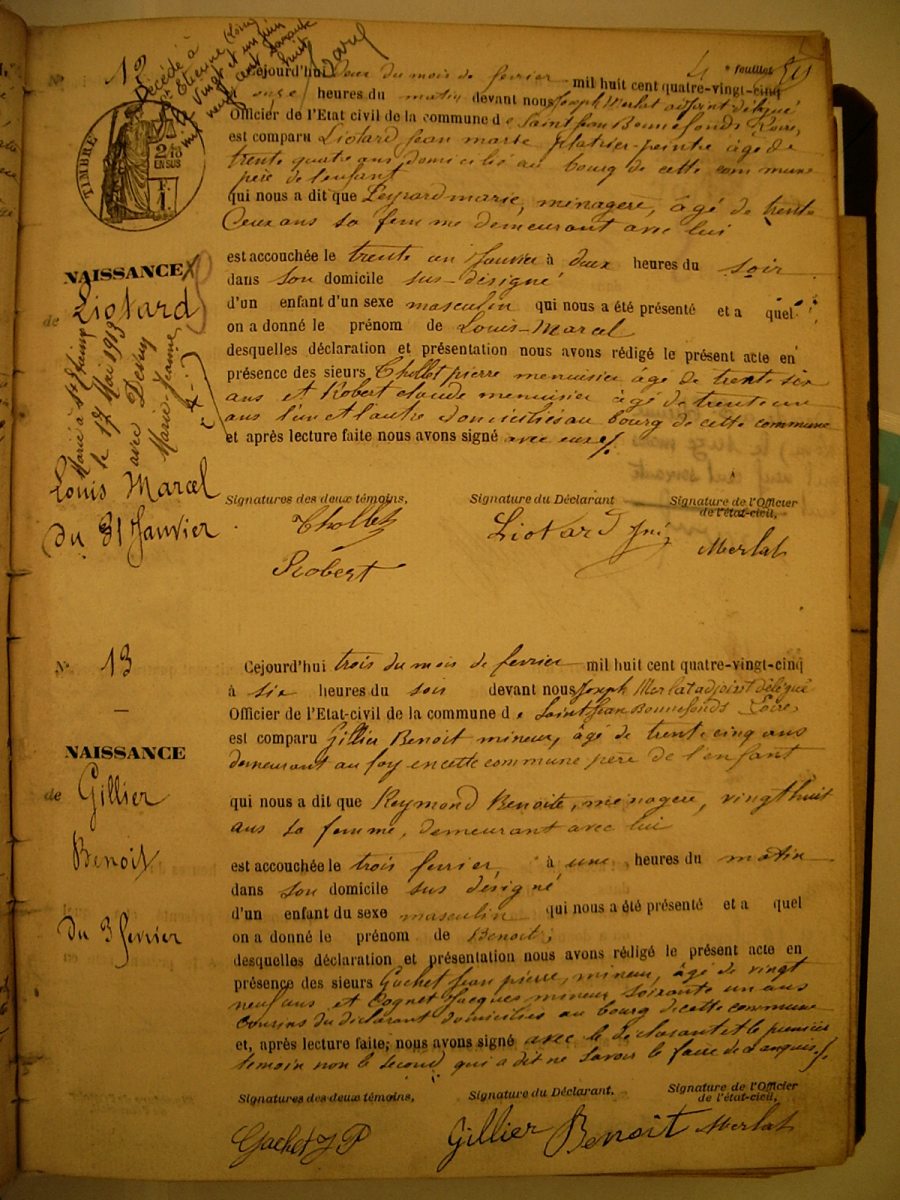 N° 12
Décédé à
St Etienne (Loire)
le vingt et un juin
mil neuf cent soixante
huit
4e feuillet
TIMBRE
2/10
EN SUS
Cejourd'hui deux du mois de fevrier mil huit cent quatre-vingt-cinq
à onze heures du matin devant nous Joseph Merlat adjoint délégué
Officier de l'Etat civil de la commune de Saint Jean Bonnefonds Loire,
est comparu Liotard Jean marie platrier-peintre âgé de
trente quatre ans domicilié au bourg de cette commune
père de l'enfant
qui nous a dit que Peyrard marie, ménagère, âgé de trente
deux ans sa femme demeurant avec lui
est accouchée le trente un Janvier à deux heures du soir
dans son domicile sus-désigné
d'un enfant d'un sexe masculin qui nous a été présenté et a quel
on a donné le prénom de Louis-Marcel
desquelles déclaration et présentation nous avons rédigé le présent acte en
présence des sieurs Thollet pierre menuisier âgé de trente six
ans et Robert claude menuisier âgé de trente un
ans l'un et l'autre domiciliés au bourg de cette commune
et après lecture faite nous avons signé avec eux
NAISSANCE
de Liotard
Marié à St
le 17 Mai 1913
avec
Marie-Jeanne
Louis Marcel
du 31 Janvier
Signatures des deux témoins, Signature du Déclarant Signature de l'Officier
de l'état-civil,
Thollet Liotard Merlat
Robert
N° 13
NAISSANCE
de Gillier
Benoit
du 3 fevrier
Cejourd'hui trois du mois de fevrier mil huit cent quatre-vingt-cinq
à six heures du soir devant nous Joseph Merlat adjoint délégué
Officier de l'Etat-civil de la commune de Saint Jean Bonnefonds Loire,
est comparu Gillier Benoit mineur, âgé de trente cinq ans
demeurant au fay en cette commune père de l'enfant
qui nous a dit que Reymond Benoite, ménagère, vingt huit
ans sa femme, demeurant avec lui
est accouchée le trois fevrier, à une heures du matin
dans son domicile sus désigné
d'un enfant du sexe masculin qui nous a été présenté et a quel
on a donné le prénom de Benoit;
desquelles déclaration et présentation nous avons rédigé le présent acte en
présence des sieurs Gachet Jean pierre, mineur, âgé de vingt
neuf ans et Cognet Jacques mineur soixante un ans
cousins du déclarant domiciliés au bourg de cette commune
et, après lecture faite, nous avons signé avec le déclarant et le premier
temoin non le second qui a dit ne savoir le faire de ce requis
Signatures des deux témoins, Signature du Déclarant. Signature de l'Officier
de l'état-civil,
Gachet J P Gillier Benoit Merlat